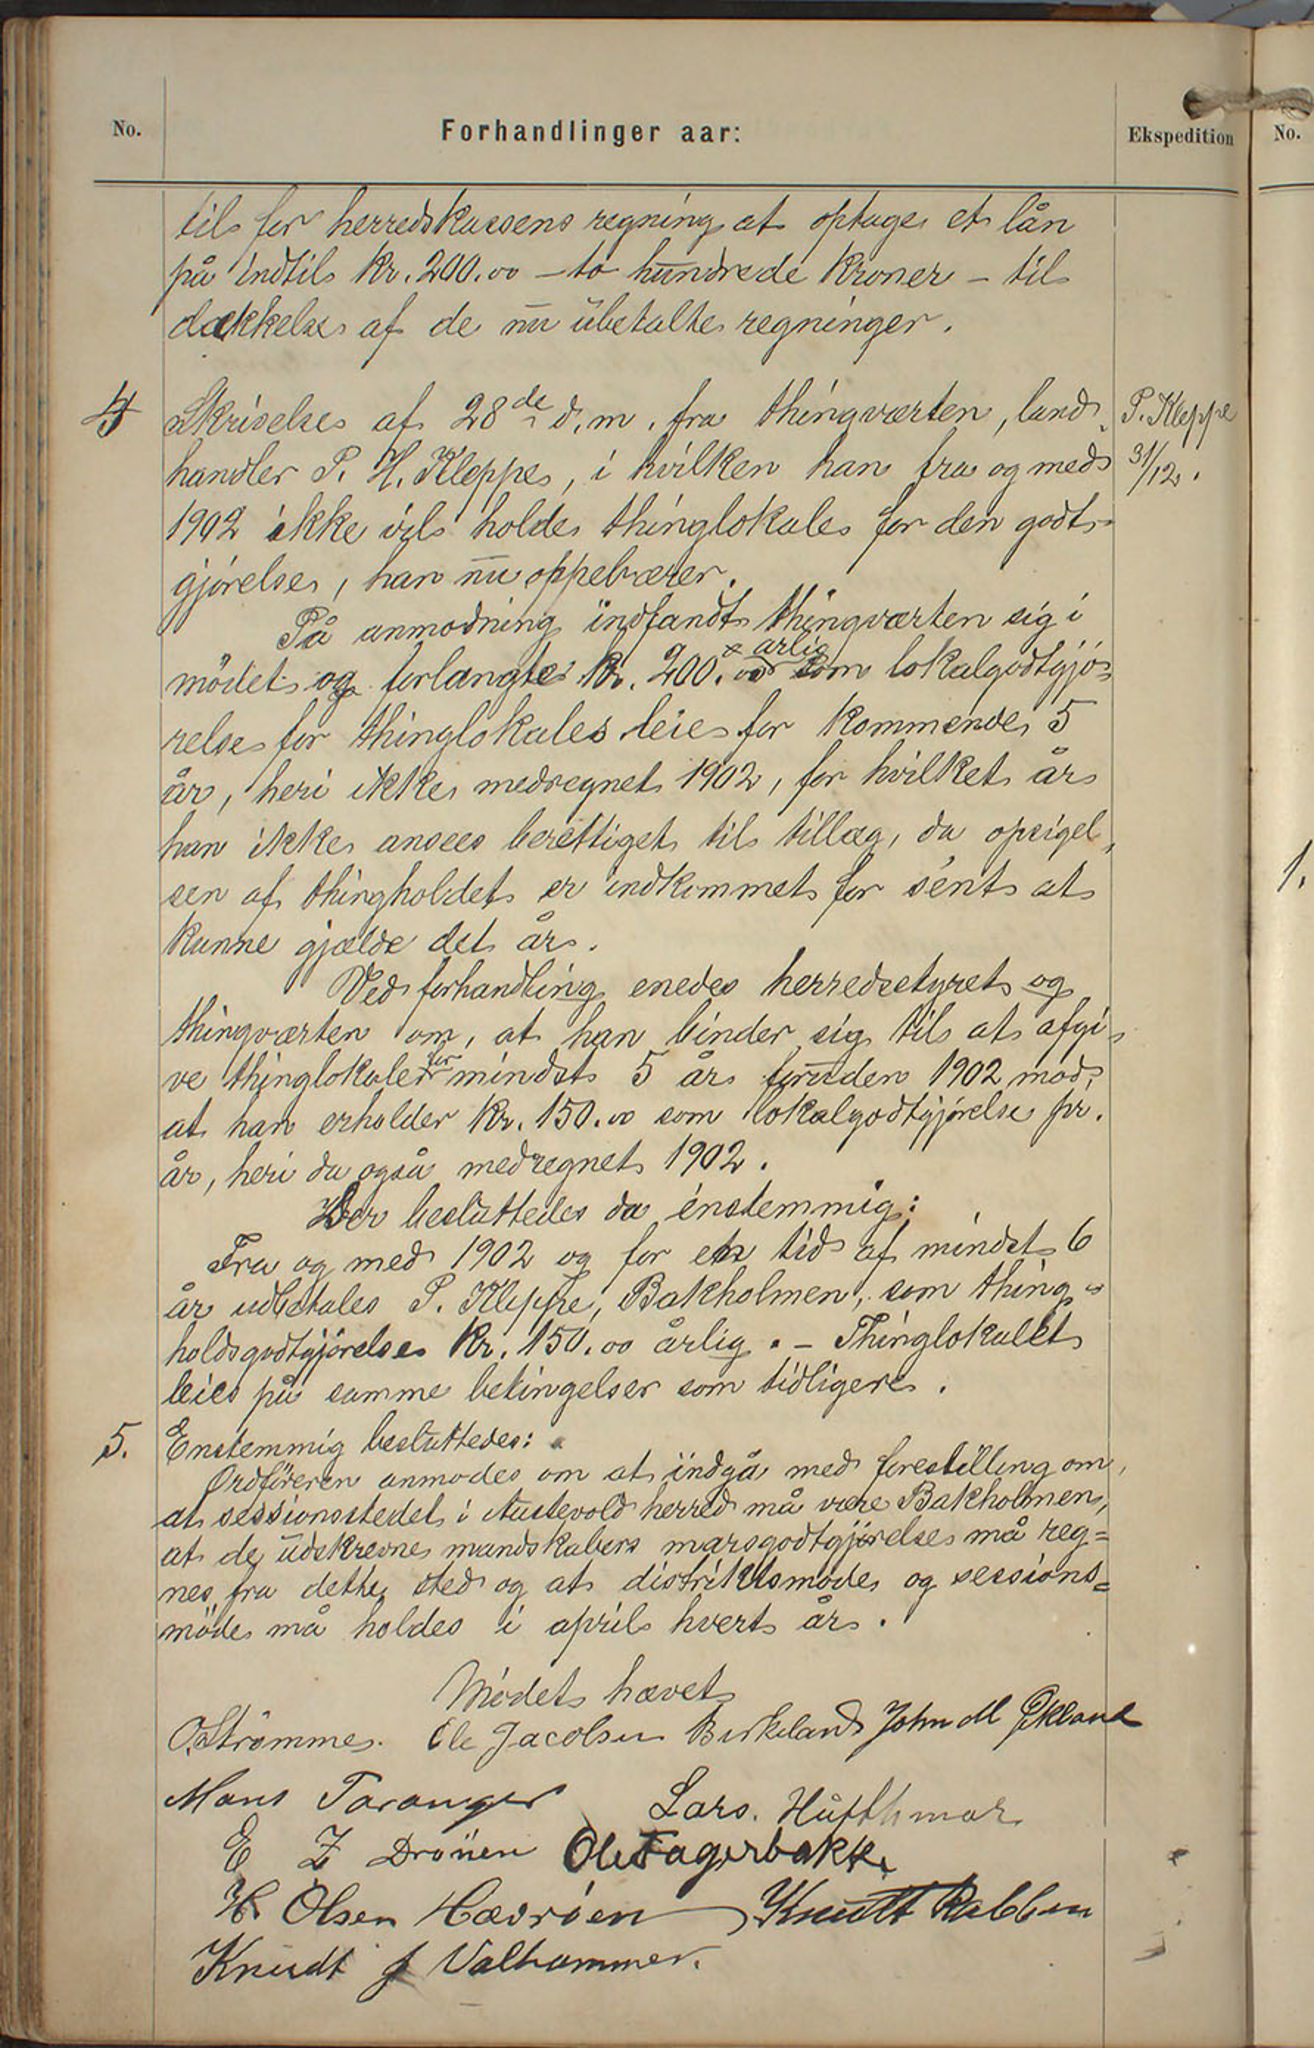 No.
Forhandlinger aar:
Ekspedition
No.
til for herredskassens regning at optage et lån
på indtil kr. 200.00 – to hundrede kroner – til
dækkelse af de nu ubetalte regninger.
4 Skrivelse af 28de d.m. fra thingværten, land-
handler P. H. Kleppe, i hvilken han fra og med
1902 ikke vil holde thinglokale for den godt-
gjørelse, han nu oppebærer.
P. Kleppe
31/12.
På anmodning indfandt thingværten sig i
mödet og forlangte kr. 200.00 × årlig som lokalgodtgjö-
relse for thinglokales leie for kommende 5
år, heri ikke medregnet 1902, for hvilket år
han ikke ansees berettiget til tillæg, da opsigel-
sen af thingholdet er indkommet for sent at
kunne gjælde det år.
Ved forhandling enedes herredsstyret og
thingværten om, at han binder sig til at afgi-
ve thinglokale for mindst 5 år foruden 1902 mod,
at han erholder kr. 150.00 som lokalgodtgjörelse pr.
år, heri da også medregnet 1902.
Der besluttedes da énstemmig:
Fra og med 1902 og for en tid af mindst 6
år udbetales P. Kleppe, Bakholmen, som thing-
holdsgodtgjörelse kr. 150.00 årlig. – Thinglokalet
leies på samme betingelser som tidligere.
5. Enstemmig besluttedes:
Ordföreren anmodes om at indgå med forestilling om,
at sessionsstedet i Austevold herred må være Bakholmen,
at de udskrevne mandskabers marsgodtgjörelse må reg=
nes fra dette sted og at distriktsmöde og sessions=
möde må holdes i april hvert år.
Mödet hævet
O. Strömme. Ole Jacobsen Birkeland John M Økland
Mons Taranger Lars. Hufthmar
E Z Drönen Ole Fagerbakke
H. Olsen Hævröen Knutt Rabben
Knudt J Valhammer.
1.